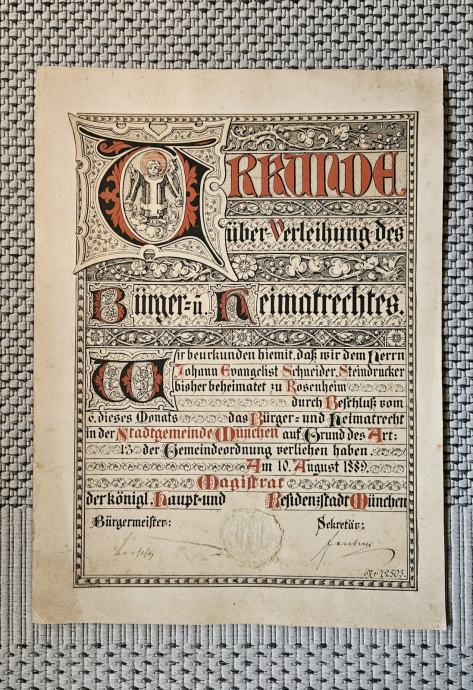 URKUNDE
über Verleihung des
Bürger- u. Heimatrechtes.
Wir beurkunden hiemit, daß wir dem Herrn
Johann Evangelist Schneider, Steindrucker
bisher beheimatet zu Rosenheim
durch Beschluß vom
6. dieses Monats das Bürger- und Heimatrecht
in der Stadtgemeinde München auf Grund des Art:
13 der Gemeindeordnung verliehen haben.
Am 10. August 1889.
Magistrat
der königl. Haupt- und Residenzstadt München
Bürgermeister: Sekretär:
Nr. 72503.